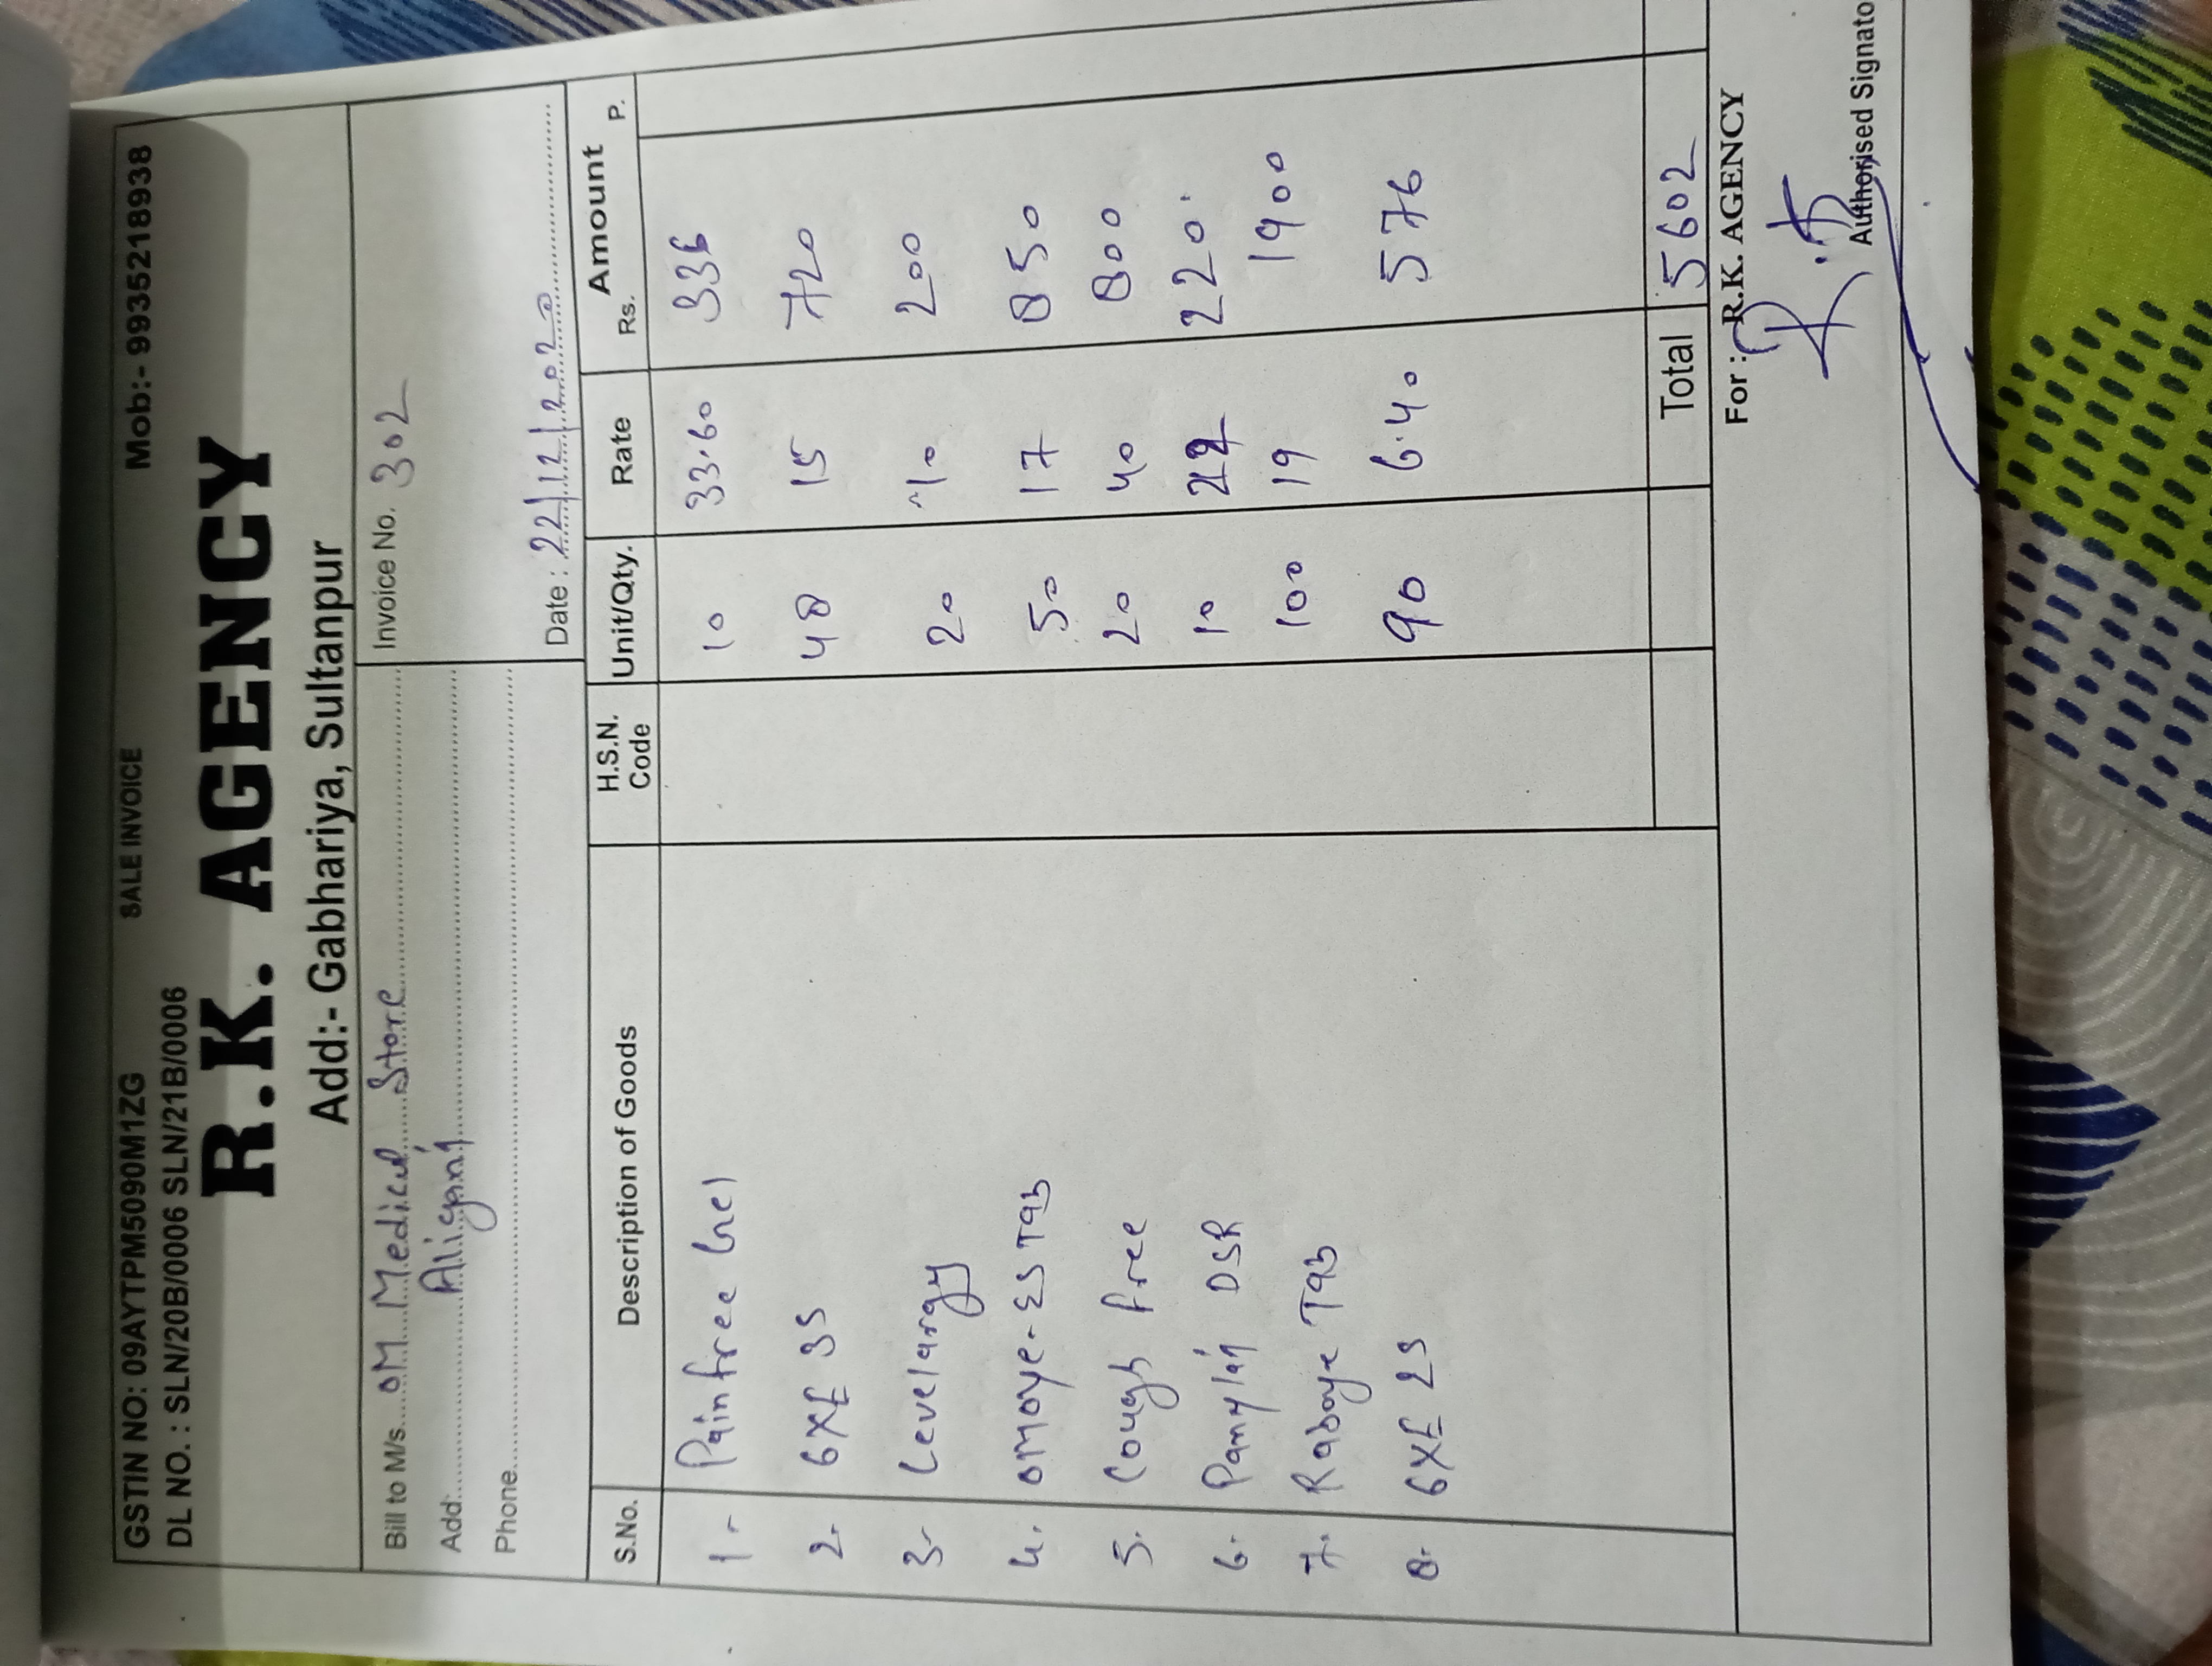 GSTIN NO: 09AYTPM5090M1ZG SALE INVOICE Mob:- 9935218938
DL NO. : SLN/20B/0006 SLN/21B/0006
R.K. AGENCY
Add:- Gabhariya, Sultanpur
Bill to M/s. OM Medical Store Invoice No. 302
Add: Aliganj
Phone
Date : 22/12/2020
S.No. Description of Goods H.S.N. Code Unit/Qty. Rate Amount Rs. P.
1- Painfree Gel 10 33.60 336
2. 6XE 3S 48 15 720
3- Levelargy 20 10 200
4. Omoye-ES Tab 50 17 850
5. Cough free 20 40 800
6. DSR 10 22 220
7. Raboye Tab 100 19 1900
8. 6XE 2S 90 6.40 576
Total 5602
For : R.K. AGENCY
Authorised Signato